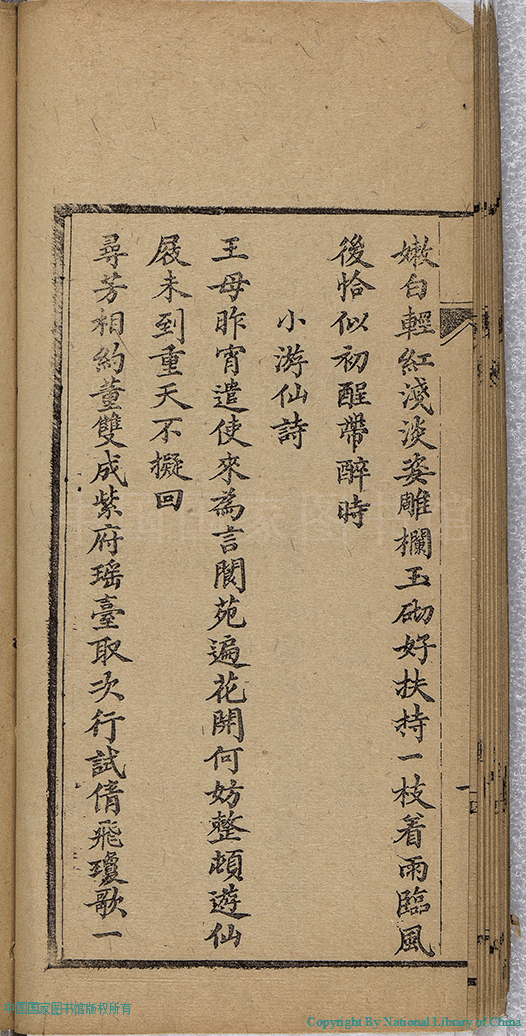 嫩白輕紅淺淡姿雕欄玉砌好扶持一枝着雨臨風
後恰似初醒帶醉時
小游仙詩
王母昨宵遣使來為言閬苑遍花開何妨整頓遊仙
屐未到重天不擬回
尋芳相約董雙成紫府瑤臺取次行試倩飛瓊歌一
中国国家图书馆版权所有
Copyright By National Library of China